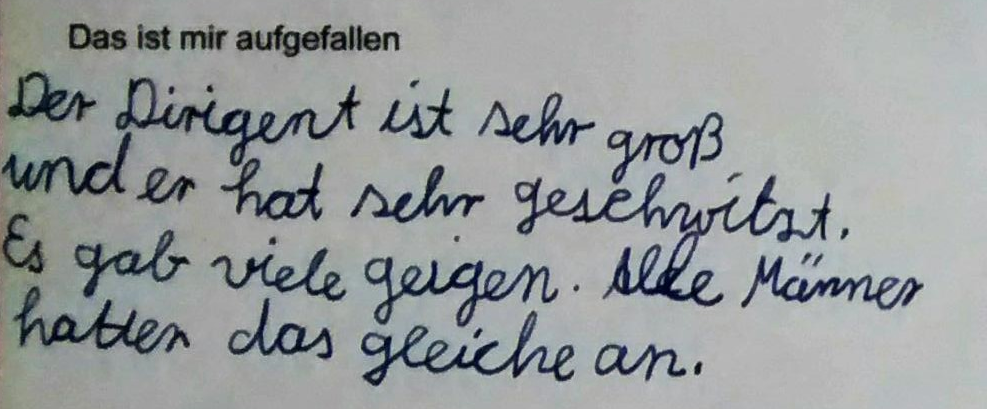 Das ist mir aufgefallen
Der Dirigent ist sehr groß
und er hat sehr geschwitzt.
Es gab viele geigen. Alle Männer
hatten das gleiche an.